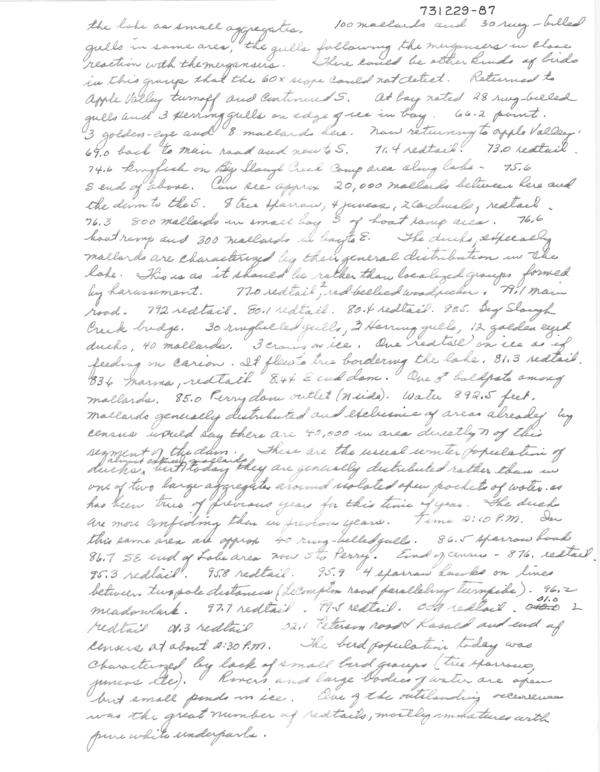 731229-87
the lake as small aggregates. 100 mallards and 30 ring-billed
gulls in same area, the gulls following the mergansers in close
reaction with the mergansers. There could be other kinds of birds
in this group that the 60x scope could not detect. Returned to
Apple Valley turnoff and continued S. At bay noted 28 ring-billed
gulls and 3 Herring gulls on edge of ice in bay. 66.2 point.
3 golden-eye and 8 mallards here. Now returning to Apple Valley.
69.0 back to main road and now to S. 71.4 redtail. 73.0 redtail.
74.6 kingfish on Big Slough Creek Camp area along lake - 75.6
S end of above. Can see approx 20,000 mallards between here and
the dam to the S. 8 tree sparrow, 4 juncos, 2 cardinals, redtail.
76.3 800 mallards in small bay S of boat ramp area. 76.6
boat ramp and 300 mallards in bay to E. The ducks, especially
mallards are characterized by their general distribution in the
lake. This is as it should be rather than localized groups formed
by harassment. 77.0 redtail, 2 red bellied woodpecker. 79.1 main
road. 79.2 redtail. 80.1 redtail. 80.4 redtail. 80.5 Big Slough
Creek bridge. 30 ringbilled gulls, 3 Herring gulls, 12 golden eyed
ducks, 40 mallards. 3 crows on ice. One redtail on ice as if
feeding on carion. It flew to tree bordering the lake. 81.3 redtail.
83.6 redtail 84.4 E end dam. One ♂ baldpate among
mallards. 85.0 Perry dam outlet (N side). Water 892.5 feet.
Mallards generally distributed and exclusive of areas already by
census would say there are 40,000 in area directly N of this
segment of the dam. These are the usual winter population of
almost entirely mallards
ducks, but today they are generally distributed rather than in
one of two large aggregates around isolated open pockets of water as
has been true of previous years for this time of year. The ducks
are more confiding than in previous years. Time 2:10 P.M. In
this same area are approx 40 ring-billed gulls. 86.5 sparrow hawk
86.7 SE end of Lake area now S to Perry. End of census - 87.6. redtail
95.3 redtail. 95.8 redtail. 95.9 4 sparrow hawks on lines
between two pole distances (Lecompton road paralleling turnpike). 96.2
meadowlark. 97.7 redtail. 99.5 redtail. redtail. 01.0 2
redtail 01.3 redtail Peterson road & Kasold and end of
census at about 2:30 P.M. The bird population today was
characterized by lack of small bird groups (tree sparrows,
juncos etc). Rivers and large bodies of water are open
but small ponds in ice. One of the outstanding occurrences
was the great number of redtails, mostly immatures with
pure white underparts.